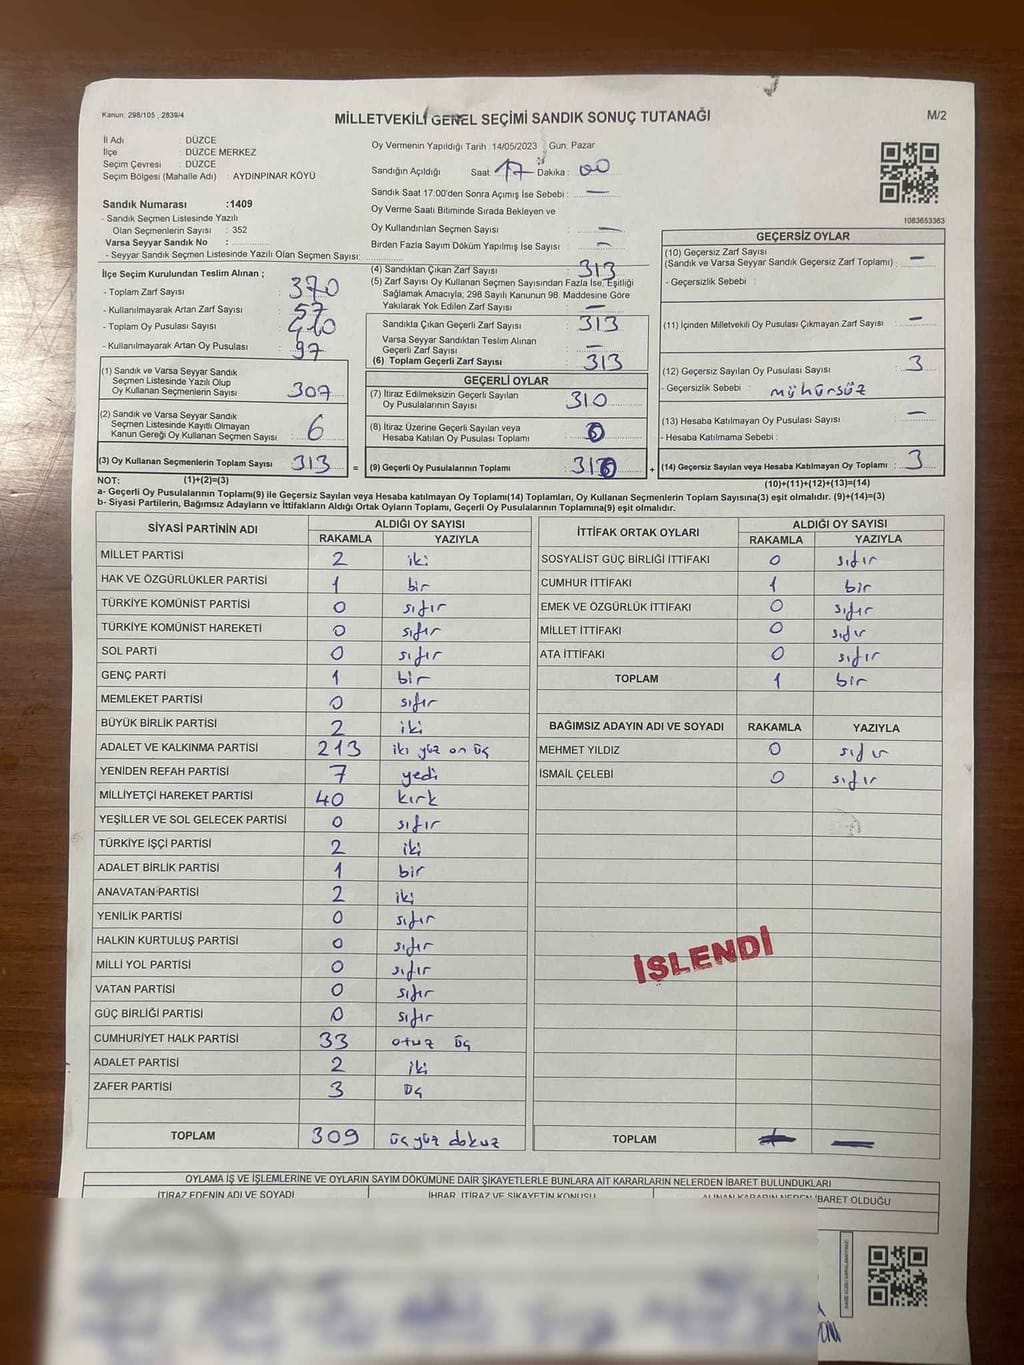 Kanun: 298/105 , 2839/4
MİLLETVEKİLİ GENEL SEÇİMİ SANDIK SONUÇ TUTANAĞI
M/2
İl Adı : DÜZCE
İlçe : DÜZCE MERKEZ
Seçim Çevresi : DÜZCE
Seçim Bölgesi (Mahalle Adı) : AYDINPINAR KÖYÜ
Sandık Numarası :1409
- Sandık Seçmen Listesinde Yazılı
Olan Seçmenlerin Sayısı : 352
Varsa Seyyar Sandık No :
- Seyyar Sandık Seçmen Listesinde Yazılı Olan Seçmen Sayısı:
Oy Vermenin Yapıldığı Tarih :14/05/2023 Gün: Pazar
Sandığın Açıldığı Saat: 17 Dakika : 00
Sandık Saat 17:00'den Sonra Açımış İse Sebebi : —
Oy Verme Saati Bitiminde Sırada Bekleyen ve
Oy Kullandırılan Seçmen Sayısı : —
Birden Fazla Sayım Döküm Yapılmış İse Sayısı : —
1083653363
İlçe Seçim Kurulundan Teslim Alınan ;
- Toplam Zarf Sayısı : 370
- Kullanılmayarak Artan Zarf Sayısı : 57
- Toplam Oy Pusulası Sayısı : 410
- Kullanılmayarak Artan Oy Pusulası : 97
(1) Sandık ve Varsa Seyyar Sandık
Seçmen Listesinde Yazılı Olup
Oy Kullanan Seçmenlerin Sayısı : 307
(2) Sandık ve Varsa Seyyar Sandık
Seçmen Listesinde Kayıtlı Olmayan
Kanun Gereği Oy Kullanan Seçmen Sayısı : 6
(3) Oy Kullanan Seçmenlerin Toplam Sayısı : 313 =
(4) Sandıktan Çıkan Zarf Sayısı : 313
(5) Zarf Sayısı Oy Kullanan Seçmen Sayısından Fazla İse, Eşitliği
Sağlamak Amacıyla, 298 Sayılı Kanunun 98. Maddesine Göre
Yakılarak Yok Edilen Zarf Sayısı : —
Sandıkta Çıkan Geçerli Zarf Sayısı : 313
Varsa Seyyar Sandıktan Teslim Alınan
Geçerli Zarf Sayısı : —
(6) Toplam Geçerli Zarf Sayısı : 313
GEÇERLİ OYLAR
(7) İtiraz Edilmeksizin Geçerli Sayılan
Oy Pusulalarının Sayısı : 310
(8) İtiraz Üzerine Geçerli Sayılan veya
Hesaba Katılan Oy Pusulası Toplamı : 0
(9) Geçerli Oy Pusulalarının Toplamı : 310 +
GEÇERSİZ OYLAR
(10) Geçersiz Zarf Sayısı
(Sandık ve Varsa Seyyar Sandık Geçersiz Zarf Toplamı) : —
- Geçersizlik Sebebi :
(11) İçinden Milletvekili Oy Pusulası Çıkmayan Zarf Sayısı : —
(12) Geçersiz Sayılan Oy Pusulası Sayısı : 3
- Geçersizlik Sebebi : mühürsüz
(13) Hesaba Katılmayan Oy Pusulası Sayısı : —
- Hesaba Katılmama Sebebi :
(14) Geçersiz Sayılan veya Hesaba Katılmayan Oy Toplamı : 3
NOT: (1)+(2)=(3) (10)+(11)+(12)+(13)=(14)
a- Geçerli Oy Pusulalarının Toplamı(9) ile Geçersiz Sayılan veya Hesaba katılmayan Oy Toplamı(14) Toplamları, Oy Kullanan Seçmenlerin Toplam Sayısına(3) eşit olmalıdır. (9)+(14)=(3)
b- Siyasi Partilerin, Bağımsız Adayların ve İttifakların Aldığı Ortak Oyların Toplamı, Geçerli Oy Pusulalarının Toplamına(9) eşit olmalıdır.
SİYASİ PARTİNİN ADI ALDIĞI OY SAYISI
RAKAMLA YAZIYLA
MİLLET PARTİSİ 2 iki
HAK VE ÖZGÜRLÜKLER PARTİSİ 1 bir
TÜRKİYE KOMÜNİST PARTİSİ 0 sıfır
TÜRKİYE KOMÜNİST HAREKETİ 0 sıfır
SOL PARTİ 0 sıfır
GENÇ PARTİ 1 bir
MEMLEKET PARTİSİ 0 sıfır
BÜYÜK BİRLİK PARTİSİ 2 iki
ADALET VE KALKINMA PARTİSİ 213 iki yüz on üç
YENİDEN REFAH PARTİSİ 7 yedi
MİLLİYETÇİ HAREKET PARTİSİ 40 kırk
YEŞİLLER VE SOL GELECEK PARTİSİ 0 sıfır
TÜRKİYE İŞÇİ PARTİSİ 2 iki
ADALET BİRLİK PARTİSİ 1 bir
ANAVATAN PARTİSİ 2 iki
YENİLİK PARTİSİ 0 sıfır
HALKIN KURTULUŞ PARTİSİ 0 sıfır
MİLLİ YOL PARTİSİ 0 sıfır
VATAN PARTİSİ 0 sıfır
GÜÇ BİRLİĞİ PARTİSİ 0 sıfır
CUMHURİYET HALK PARTİSİ 33 otuz üç
ADALET PARTİSİ 2 iki
ZAFER PARTİSİ 3 üç
TOPLAM 309 üç yüz dokuz
İTTİFAK ORTAK OYLARI ALDIĞI OY SAYISI
RAKAMLA YAZIYLA
SOSYALİST GÜÇ BİRLİĞİ İTTİFAKI 0 sıfır
CUMHUR İTTİFAKI 1 bir
EMEK VE ÖZGÜRLÜK İTTİFAKI 0 sıfır
MİLLET İTTİFAKI 0 sıfır
ATA İTTİFAKI 0 sıfır
TOPLAM 1 bir
BAĞIMSIZ ADAYIN ADI VE SOYADI RAKAMLA YAZIYLA
MEHMET YILDIZ 0 sıfır
İSMAİL ÇELEBİ 0 sıfır
İŞLENDİ
TOPLAM — —
OYLAMA İŞ VE İŞLEMLERİNE VE OYLARIN SAYIM DÖKÜMÜNE DAİR ŞİKAYETLERLE BUNLARA AİT KARARLARIN NELERDEN İBARET BULUNDUKLARI
İTİRAZ EDENİN ADI VE SOYADI İHBAR, İTİRAZ VE ŞİKAYETİN KONUSU ALINAN KARARIN NEDEN İBARET OLDUĞU